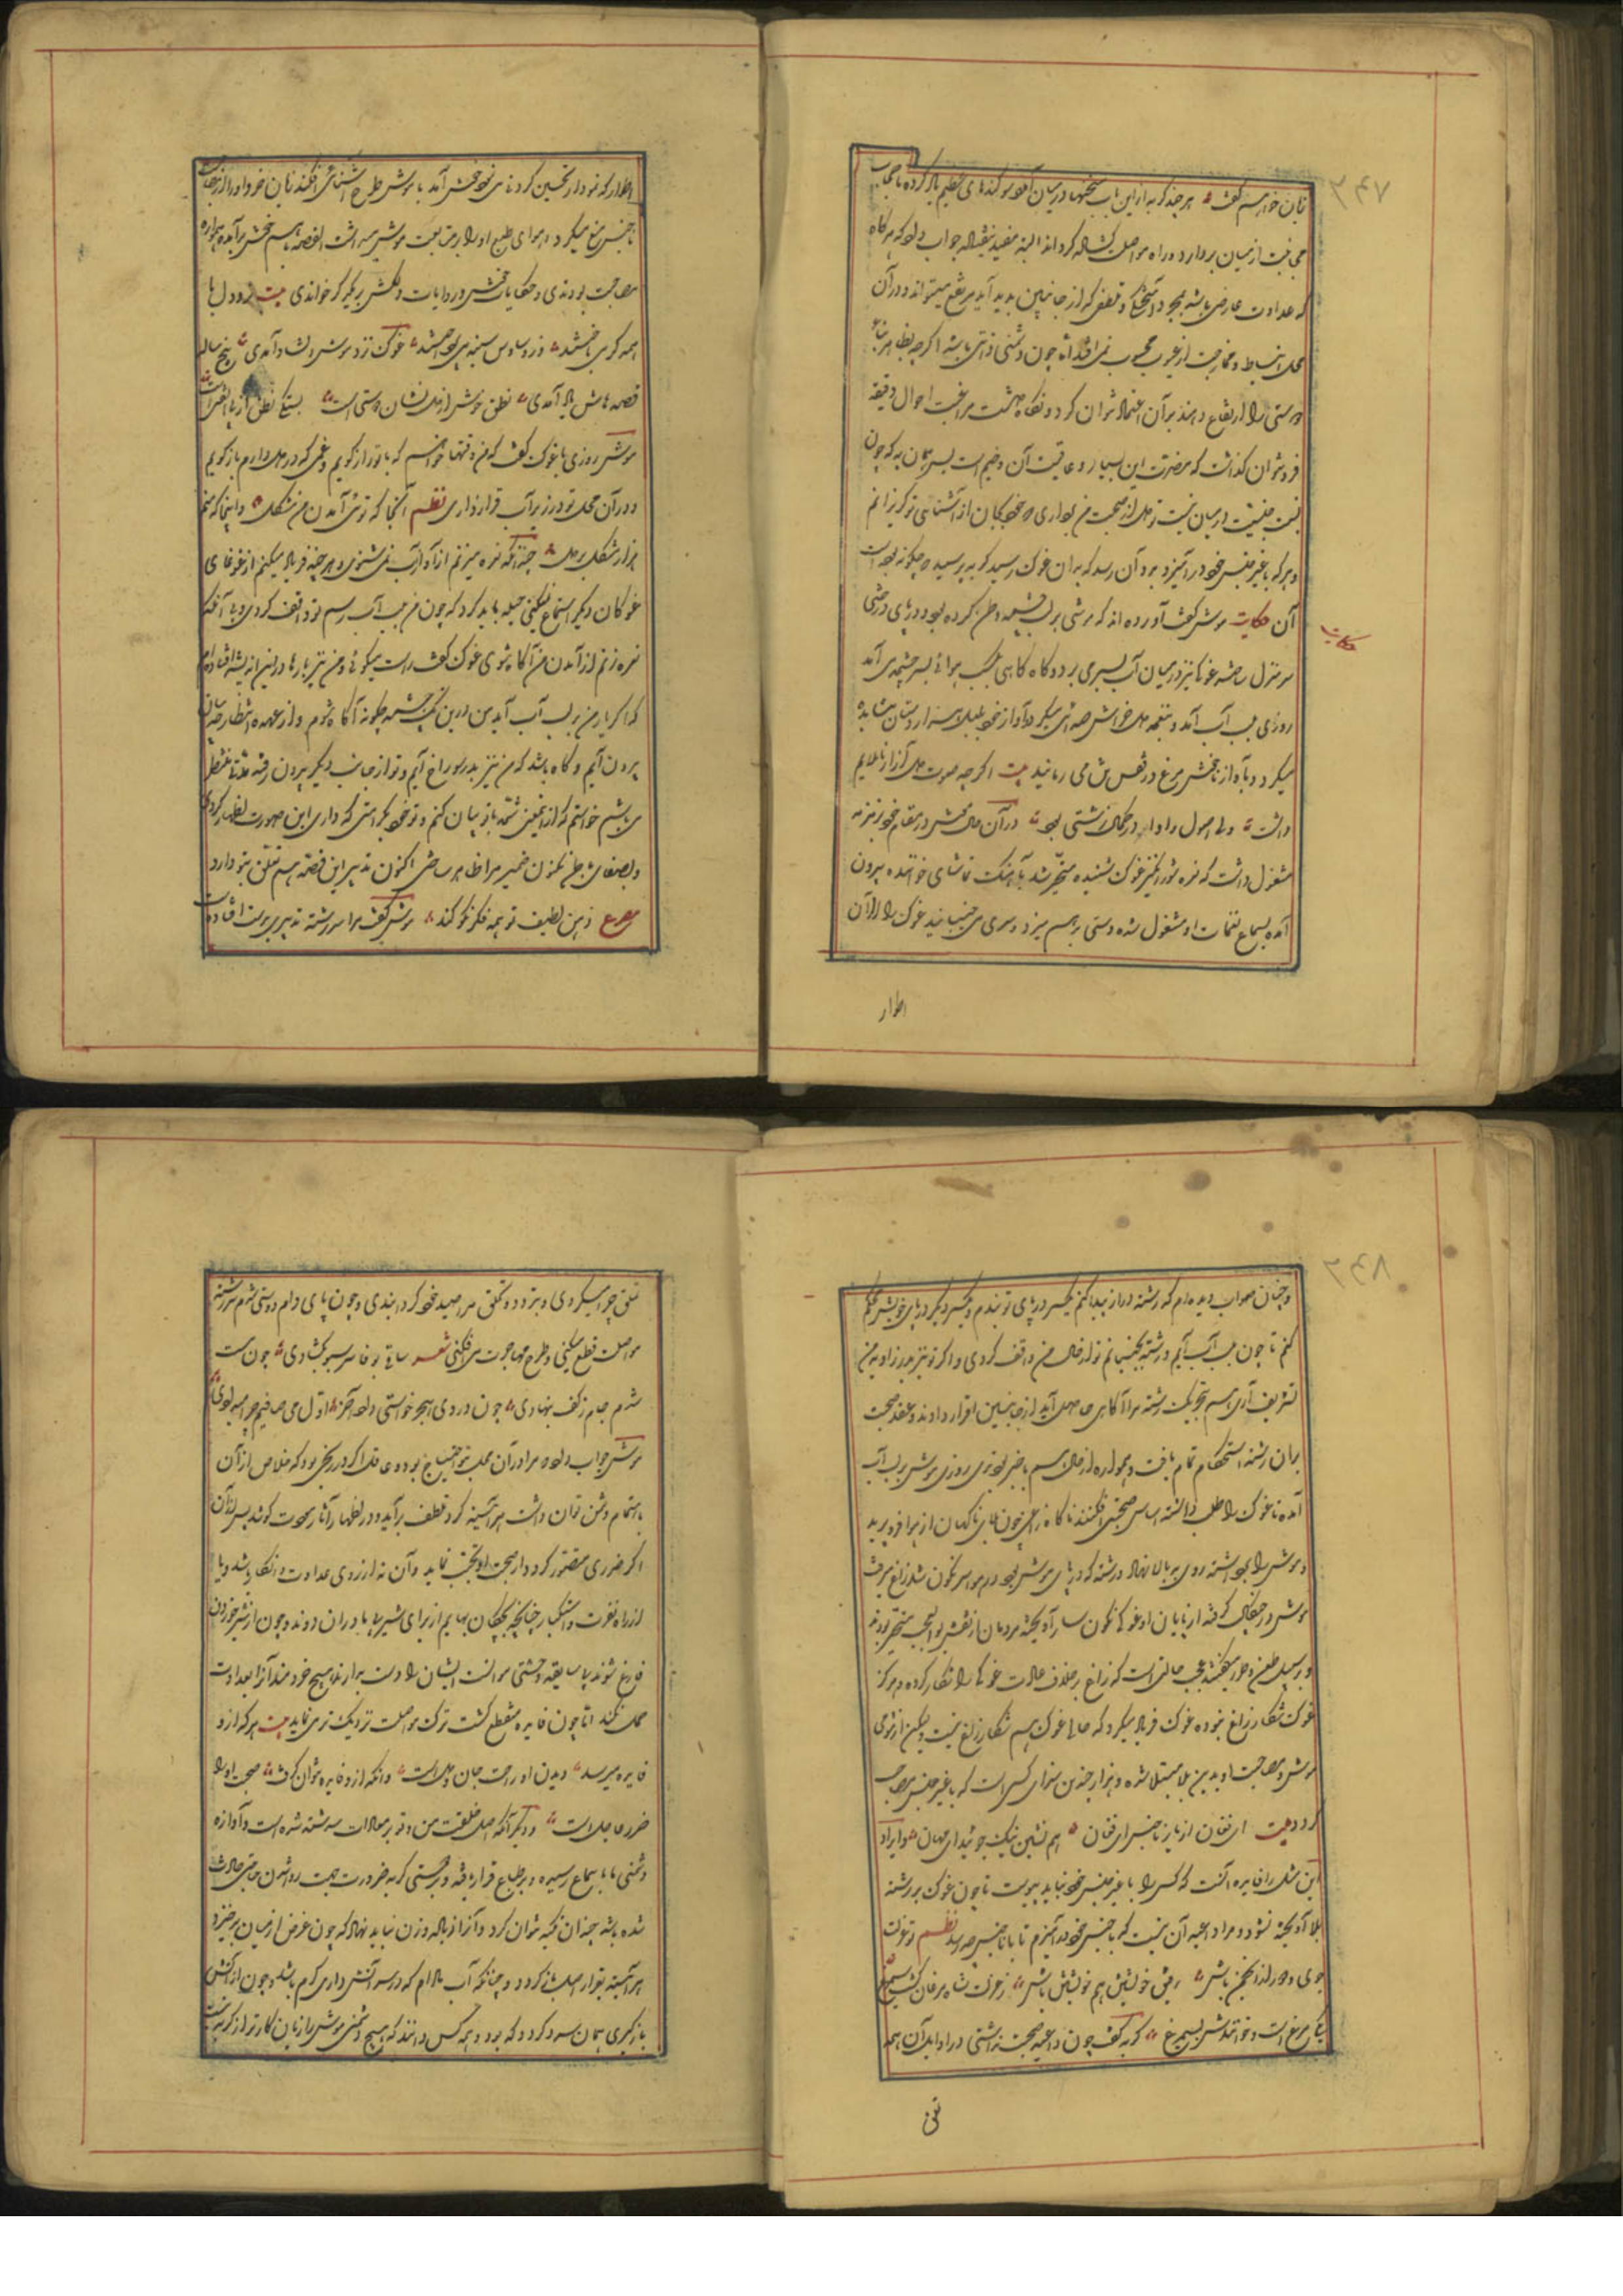 ۲۴۷
نان خواهم گفت هر چند گربه از این باب سخنها در میان آورد سوگندهای عظیم یاد کرده تا حجاب
مجانبت از میان بردارد و راه مواصلت گشاده گرداند البته مفید نیفتاد جواب داد که هرگاه
که عداوت عارضی باشد بمجرد آمیختگی و تلطفی که از جانبین پدید آید مرتفع میتواند و در آن
محل انبساط و ممازجت از عیوب محسوب نمی افتد اما چون دشمنی ذاتی باشد اگر چه بظاهر بناء
دوستی را ارتفاع دهند بر آن اعتماد نتوان کرد و نگاه داشت مراقبت احوال دقیقه
فرو نتوان گذاشت که مضرت این بسیار و عاقبت آن وخیم است پس همان به که چون
نسبت جنسیت در میان نیست تو دل از صحبت من برداری و من خود بجان از آشنائی تو گریزانم
و هر که با غیر جنس خود در آمیزد بدو آن رسد که بدان غوک رسید گربه پرسید چگونه بوده است
آن حکایت موش گفت آورده اند که موشی بر لب چشمه وطن کرده بود و در پای درختی
حکایت
سر منزل ساخته غوکی نیز در میان آب بسر می برد و گاه گاهی بجهت هوائی بسر چشمه می آمد
روزی لب آب آمد و نغمه دل خراش صدائی میکرد و آواز خود بلبل هزار دستان میشاید
میکرد و بآواز ناخوش مرغ در قفس تن می رمانید بیت اگر چه صوت دل آزار ناملایم
داشت ولی اصول و ادا در کمال زشتی بود در آن حال موش در مقام خود بزمزمه
مشغول داشت که نعره شورانگیز غوک شنیده متحیر شد بآهنگ تماشای خواننده بیرون
آمد بسماع نغمات او مشغول شده دستی برهم میزد و سری می جنبانید غوک را از آن
اطوار
اطوار که نمودار تحسین کردندی خوش آمد با موش طرح آشنائی افکند زبان خرد او را از مجالست
ناجنس منع میکرد و هوای طبع او را بر متابعت موش میداشت القصه با هم خوش برآمده همواره
مصاحبت بودندی و حکایات خوش و روایات دلکش بر یکدیگر خواندی بیت زود دل با
همدگر می باختند وز وساوس سینه می پرداختند غوک نزد موش دلشاد آمدی پنج ساله
قصه هاش یاد آمدی نطق جوش از دل نشان دوستی است بستگی نطق از بی الفتی است
موش روزی با غوک گفت که من وقتها خواهم که با تو راز گویم و غمی که در دل دارم باز گویم
و در آن محل تو در زیر آب قرار داری نظم آنجا که توئی آمدن من مشکل و اینجا که منم
هزار مشکل بر دل چندانکه نعره میزنم از آواز آب نمی شنوی و هر چند فریاد میکنم از غوغای
غوکان دیگر استماع نمیکنی حیله باید کرد که چون من بلب آب رسم تو واقف گردی و بی آنکه
نعره زنم از آمدن من آگاه شوی غوک گفت راست میگوئی و من نیز بارها در این اندیشه افتاده ام
که اگر یار من بر لب آب آید من در بن این چشمه چگونه آگاه شوم و از عهده انتظار
بیرون آیم و گاه باشد که من نیز بدر سوراخ آیم و تو از جانب دیگر بیرون رفته مدتی منتظر
می باشم خواستم که از این معنی شمه با تو بیان کنم و تو خود بکرامتی که داری این صورت اظهار کردی
و بصفای باطن مکنون ضمیر مرا ظاهر ساختی اکنون تدبیر این قضیه هم تعلق بتو دارد
مصرع ذهن لطیف تو همه فکر نکو کند موش گفت مرا سر رشته تدبیر بدست افتاده است
۲۴۸
و چنان صواب دیده ام که رشته دراز پیدا کنم یکسر در پای تو بندم و یکسر دیگر در پای خویش محکم
کنم تا چون بلب آب آیم و رشته بجنبانم تو از حال من واقف گردی و اگر تو نیز بدر زاویه من
تشریف آری هم بتحریک رشته مرا آگاهی حاصل آید از جانبین اقرار دادند و عقد صحبت
بدان رشته استحکام تمام یافت و همواره از حال هم با خبر بودندی روزی موش بر لب آب
آمده تا غوک را طلب داشته اساس صحبتی افکنند ناگاه زاغی چون بلای ناگهان از هوا فرو پرید
و موش را برداشته روی ببالا نهاد و رشته که در پای موش بود دم موا سر نگون شد زاغ میرفت
موش در چنگال گرفته از پایان او غوکی نگون سار آویخته مردمان از نقش بوالعجب متحیر بودند
و بر سبیل طعن و طنز میگفتند عجب حالتی است که زاغ بر خلاف عادت غوکی را شکار کرده و هرگز
غوک شکار زاغ نبوده غوک فریاد میکرد که حالا غوک هم شکار زاغ نیست و لیکن از شومی
موش و مصاحبت او بدین بلا مبتلا شده و هزار چندین سزای کسی است که با غیر جنس مصاحب
گردد بیت ای فغان از یار ناجنس ای فغان هم نشین نیک جوئید ای مهان و ایراد
این مثل را فایده آنست که کس را با غیر جنس خود نباید پیوست تا چون غوک بر رشته
بلا آویخته نشود و مرا داعیه آن نیست که با جنس خود آمیزم تا با ناجنس چه رسد نظم تو عزلت
جوی و دور از انجمن باش رفیق خویشتن هم خویشتن باش ز عزلت شاه مرغان گشت سیمرغ
یکی مرغ است و خوانندش بسیمرغ گربه گفت چون داعیه صحبت نداشتی در اوایل آن همه
تملق
تملق چرا میکردی و بتودد و تملق مرا صید خود گردانیدی و چون پای دلم دوستی شدم سر رشته
مواصلت قطع میکنی و طرح مهاجرت می فکنی شعر ساقی بوفا سر سبو بگشادی چون مست
شدم جام ز کف بنهادی چون دردی هجر خواستی داد آخر اول می صافیم چرا میدادی
موش جواب داد مرا در آن محل بتو احتیاج بود و عاقل اگر در رنجی بود که خلاص از آن
باهتمام دشمن توان داشت هر آینه گرد تلطف برآید و در اظهار آثار مودت کوشد پس از آن
اگر ضرری متصور گردد از صحبت او تجنب نماید و آن نه از روی عداوت و انکار باشد و یا
از راه نفرت و استکبار چنانچه بچگان بهایم از برای شیر با مادران دوند و چون از شیر خوردن
فارغ شوند بی سابقه وحشتی موانست ایشان را دست بدارند و هیچ خردمند آنرا بعداوت
حمل نکند اما چون فایده منقطع گشت ترک مواصلت نزدیک تر می نماید بیت هر که از او
فایده میرسد دیدن او راحت جان و دل است و آنکه از و فایده نتوان گرفت صحبت او را
ضرر عاجل است و دیگر آنکه اصل خلقت من و تو بر معادات سرشته شده است و آوازه
دشمنی ما با سماع رسیده و بر طباع قرار یافته و دوستی که بضرورت جهت روا شدن حاجتی حادث
شده باشد چندان تکیه نتوان کرد و آنرا زیاده وزن نباید نهاد که چون غرض از میان برخیزد
هر آینه بقرار اصل باز گردد و چنانکه آب مادام که در سر آتش داری گرم باشد و چون از آتش
باز گیری همان سرد گردد که بود و همه کس دانند که هیچ دشمنی موش را زیان کارتر از گربه نیست